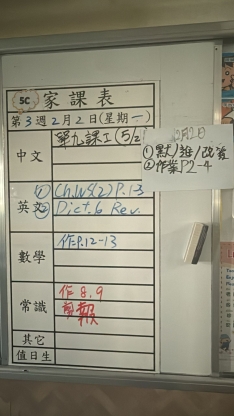 5C 家課表
第3週2月2日(星期一)
中文 第九課工(5/2
英文 ① Ch.WS(2) P.1-3
② Dict.6 Rev.
數學 作P.12-13
常識 作8,9
剪報
其它
值日生
2月2日
①默/進/改簽
②作業P2-4